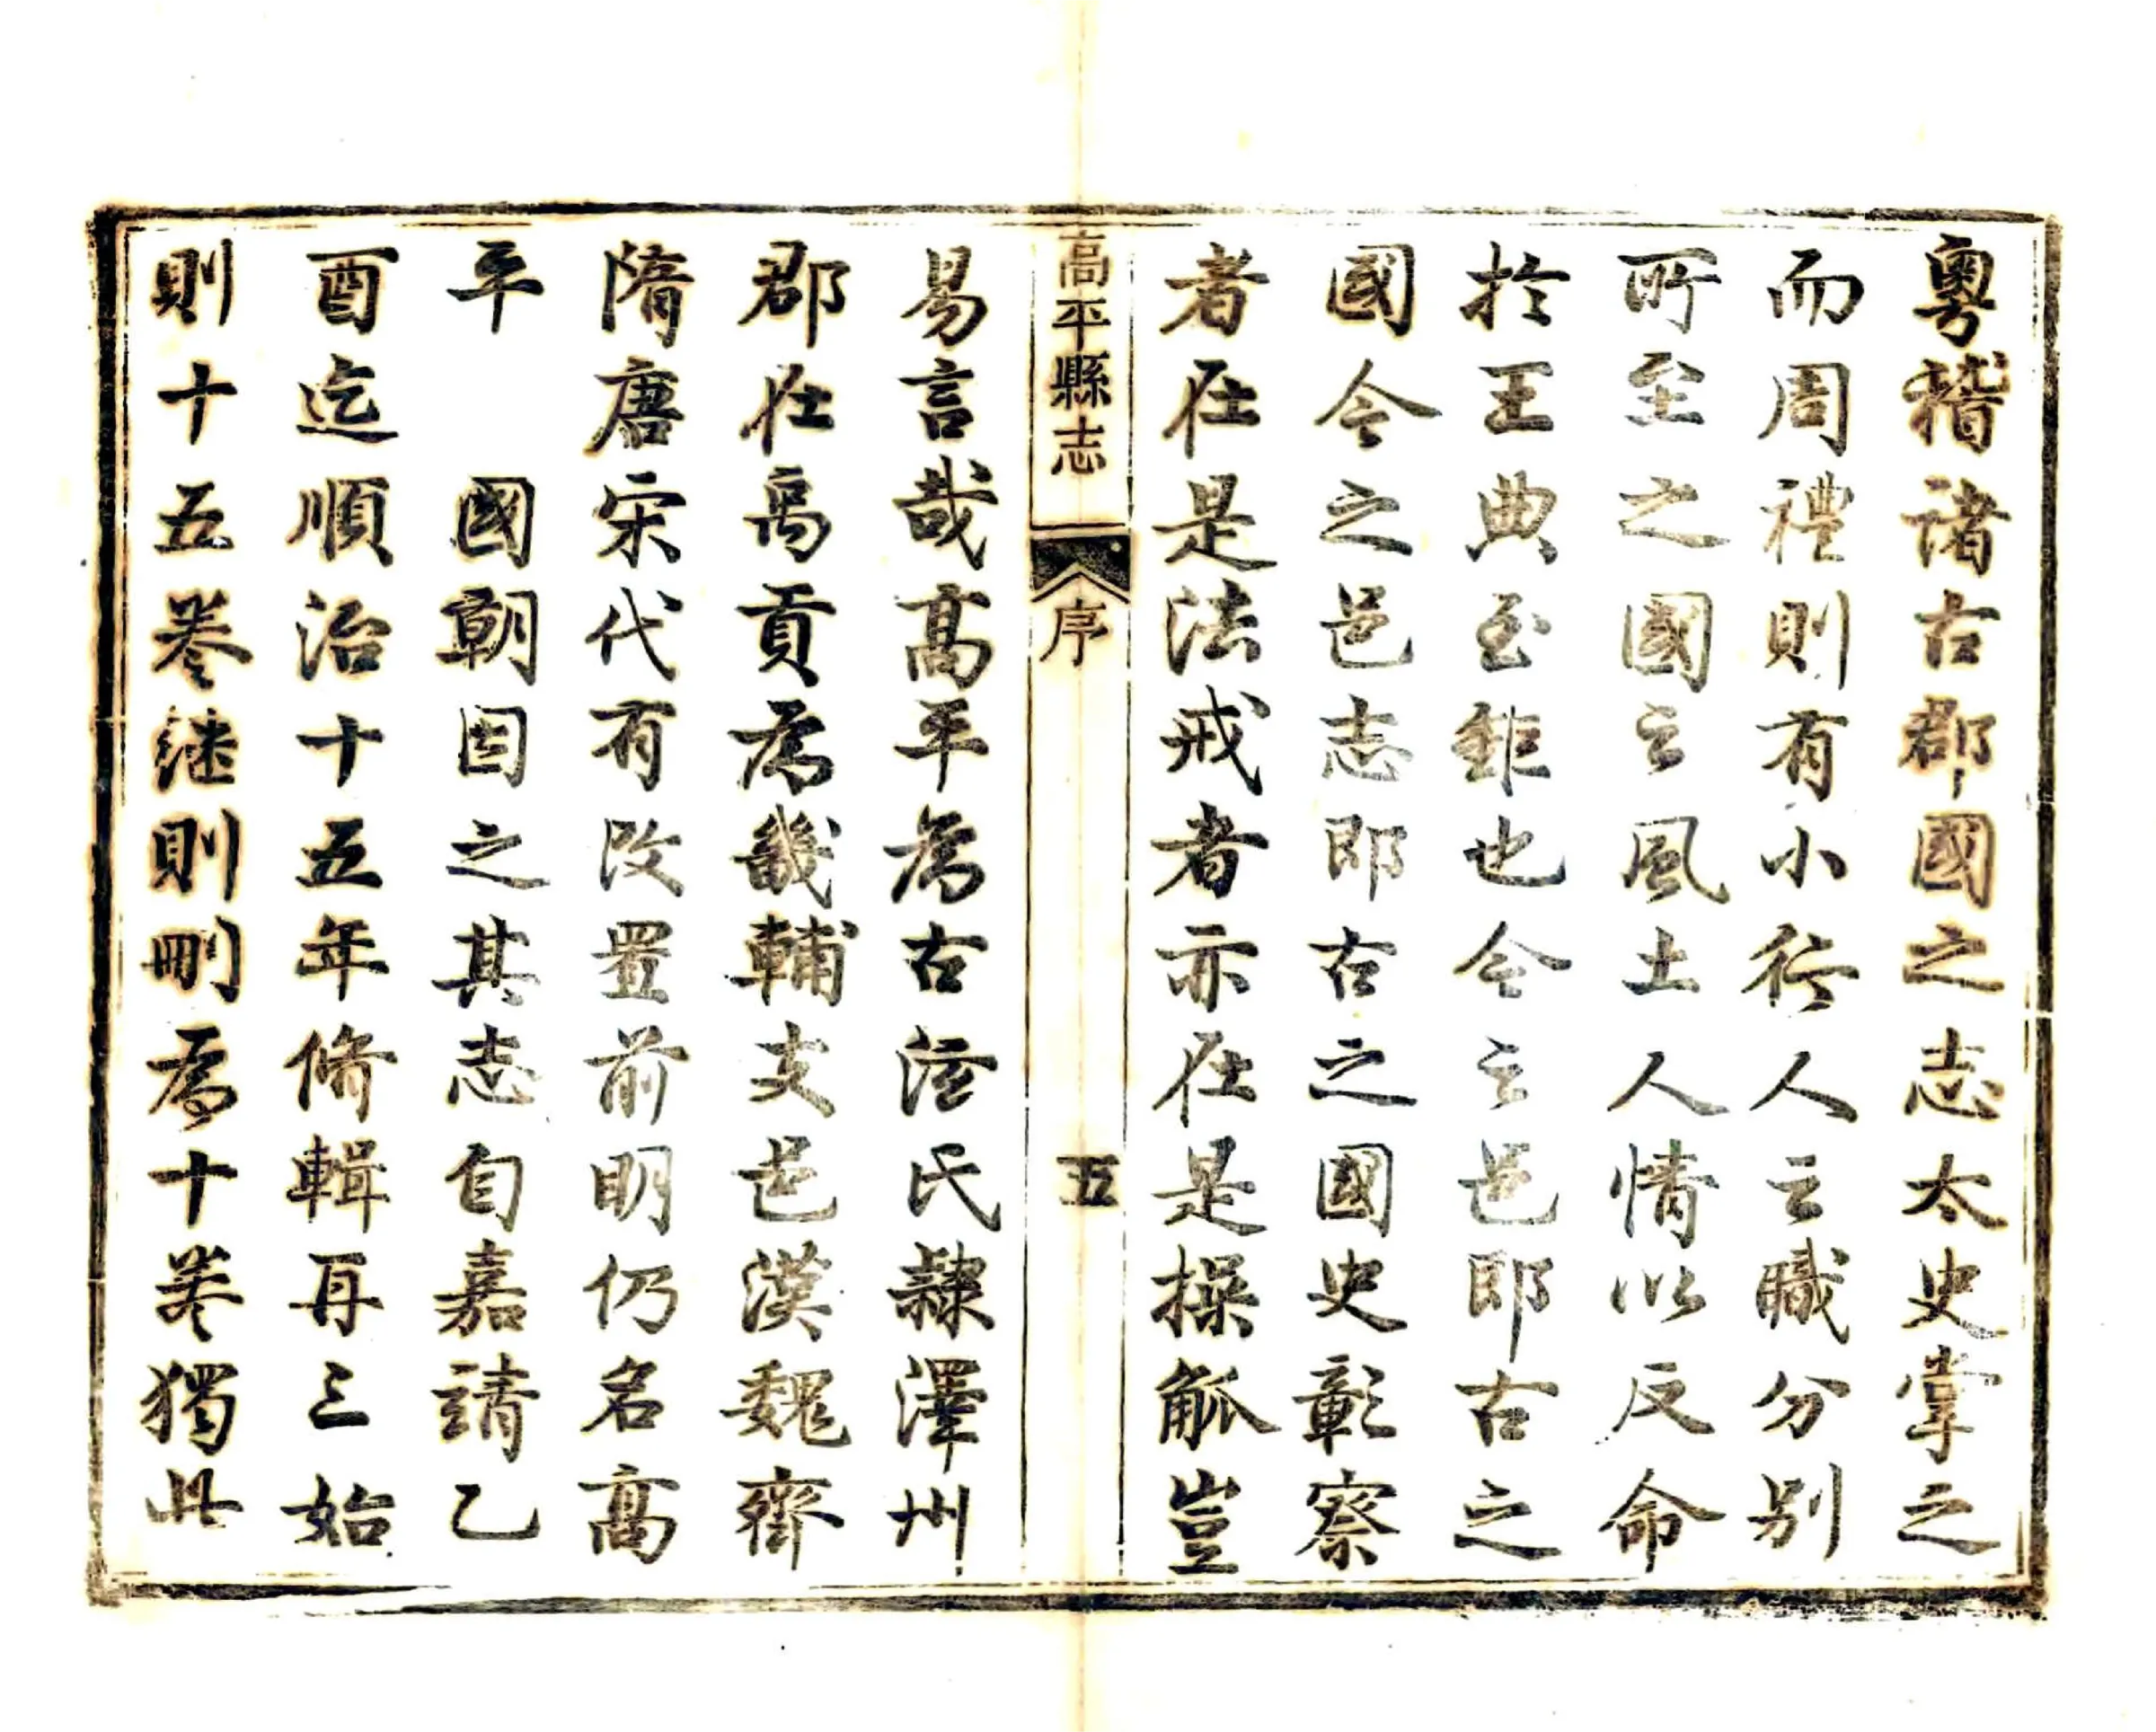 粵稽諸古郡國之志太史掌之
而周禮則有小行人之職分别
所至之國之風土人情以反命
扵王典至鉅也今之邑即古之
國今之邑志即古之國史彰察
者在是法戒者亦在是操觚豈
高平縣志
序
五
易言哉髙平為古泫氏隸澤州
郡在禹貢為畿輔支邑漢魏齊
隋唐宋代有改置前明仍名髙
平　國朝因之其志自嘉請乙
酉迄順治十五年脩輯再三始
則十五卷继則刪為十卷獨此